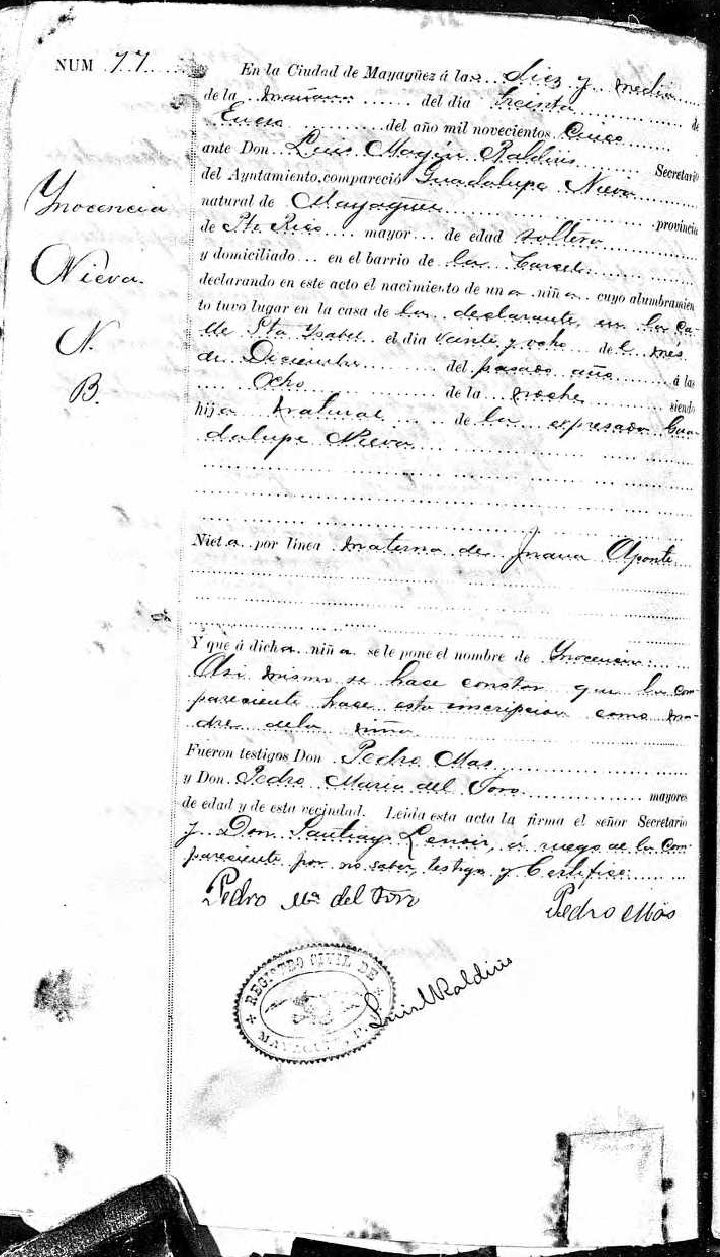 NUM 77
En la Ciudad de Mayagüez á las diez y media
de la mañana del día treinta de
Enero del año mil novecientos Cinco
ante Don Luis Magín Raldiris Secretario
del Ayuntamiento, compareció Guadalupe Nieva
natural de Mayagüez provincia
de Pto. Rico mayor de edad soltera
y domiciliado en el barrio de la Carcel
declarando en este acto el nacimiento de una niña cuyo alumbramien
to tuvo lugar en la casa de la declarante, en la Ca-
lle Sta Ysabel el día veinte y ocho del mes
de Diciembre del pasado año á las
Ocho de la noche siendo
hija natural de la expresada Gua
dalupe Nieva
Nieta por línea materna de Juana Aponte
Y que á dicha niña se le pone el nombre de Ynocencia
Asi mismo se hace constar que la com-
pareciente hace esta inscripcion como ma-
dre de la niña
Fueron testigos Don Pedro Mas
y Don Pedro Maria del Toro mayores
de edad y de esta vecindad. Leída esta acta la firma el señor Secretario
y Don Santiago Lenoir, á ruego de la Com-
pareciente por no saber, testigos y Certifico
Pedro Ma del Toro
Pedro Mas
Luis M Raldiris
REGISTRO CIVIL DE
MAYAGUEZ, P. R.
Ynocencia
Nieva
N.
B.